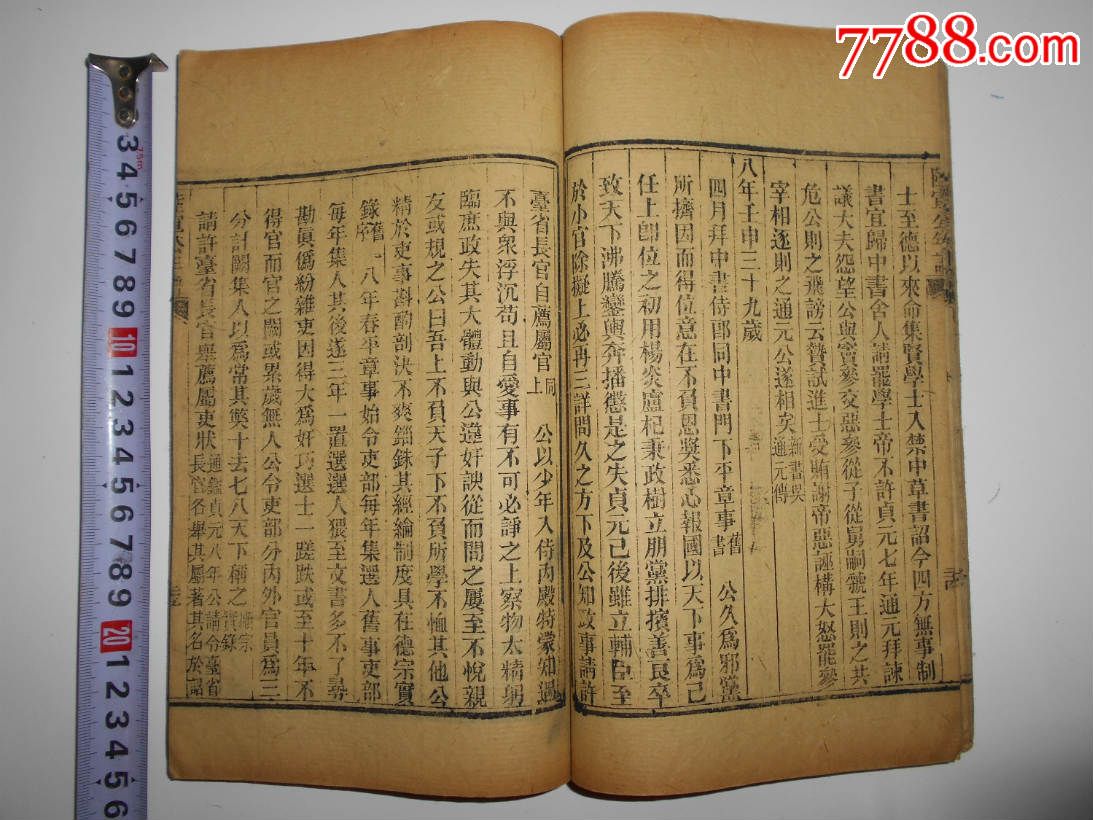 7788.com
士至德以來命集賢學士入禁中草書詔今四方無事制
書宜歸中書舍人請罷學士帝不許貞元七年通元拜諫
議大夫怨望公與竇參交惡參從子從舅嗣虢王則之共
危公則之飛謗云贄試進士受賄謝帝惡誣構大怒罷參
宰相逐則之通元公遂相矣
通元傳
八年壬申三十九歲
四月拜中書侍郎同中書門下平章事舊書 公久爲邪黨
所擠因而得位意在不負恩奨悉心報國以天下事爲己
任上卽位之初用楊炎盧杞秉政樹立朋黨排擯善良卒
致天下沸騰鑾輿奔播懲是之失貞元已後雖立輔臣至
於小官除擬上必再三詳問久之方下及公知政事請許
臺省長官自薦屬官同上 公以少年入侍內殿特蒙知遇
不與衆浮沉苟且自愛事有不可必諍之上察物太精躬
臨庶政失其大體動與公違奸諛從而間之屢至不悅親
友或規之公曰吾上不負天子下不負所學不恤其他公
精於吏事斟酌剖決不爽錙銖其經綸制度具在德宗實
錄舊書 八年春平章事始令吏部每年集選人舊事吏部
每年集人其後遂三年一置選選人猥至文書多不了尋
勘眞僞紛雜吏因得大爲奸巧選士一蹉跌或至十年不
得官而官之闕或累歲無人公令吏部分內外官員爲三
分計闕集人以爲常其獘十去七八天下稱之順宗實錄
請許臺省長官舉薦屬吏狀通鑑貞元八年公請令臺省
長官各舉其屬著其名於詔
75m
3 4 5 6 7 8 9 10 1 2 3 4 5 6 7 8 9 20 1 2 3 4 5 6